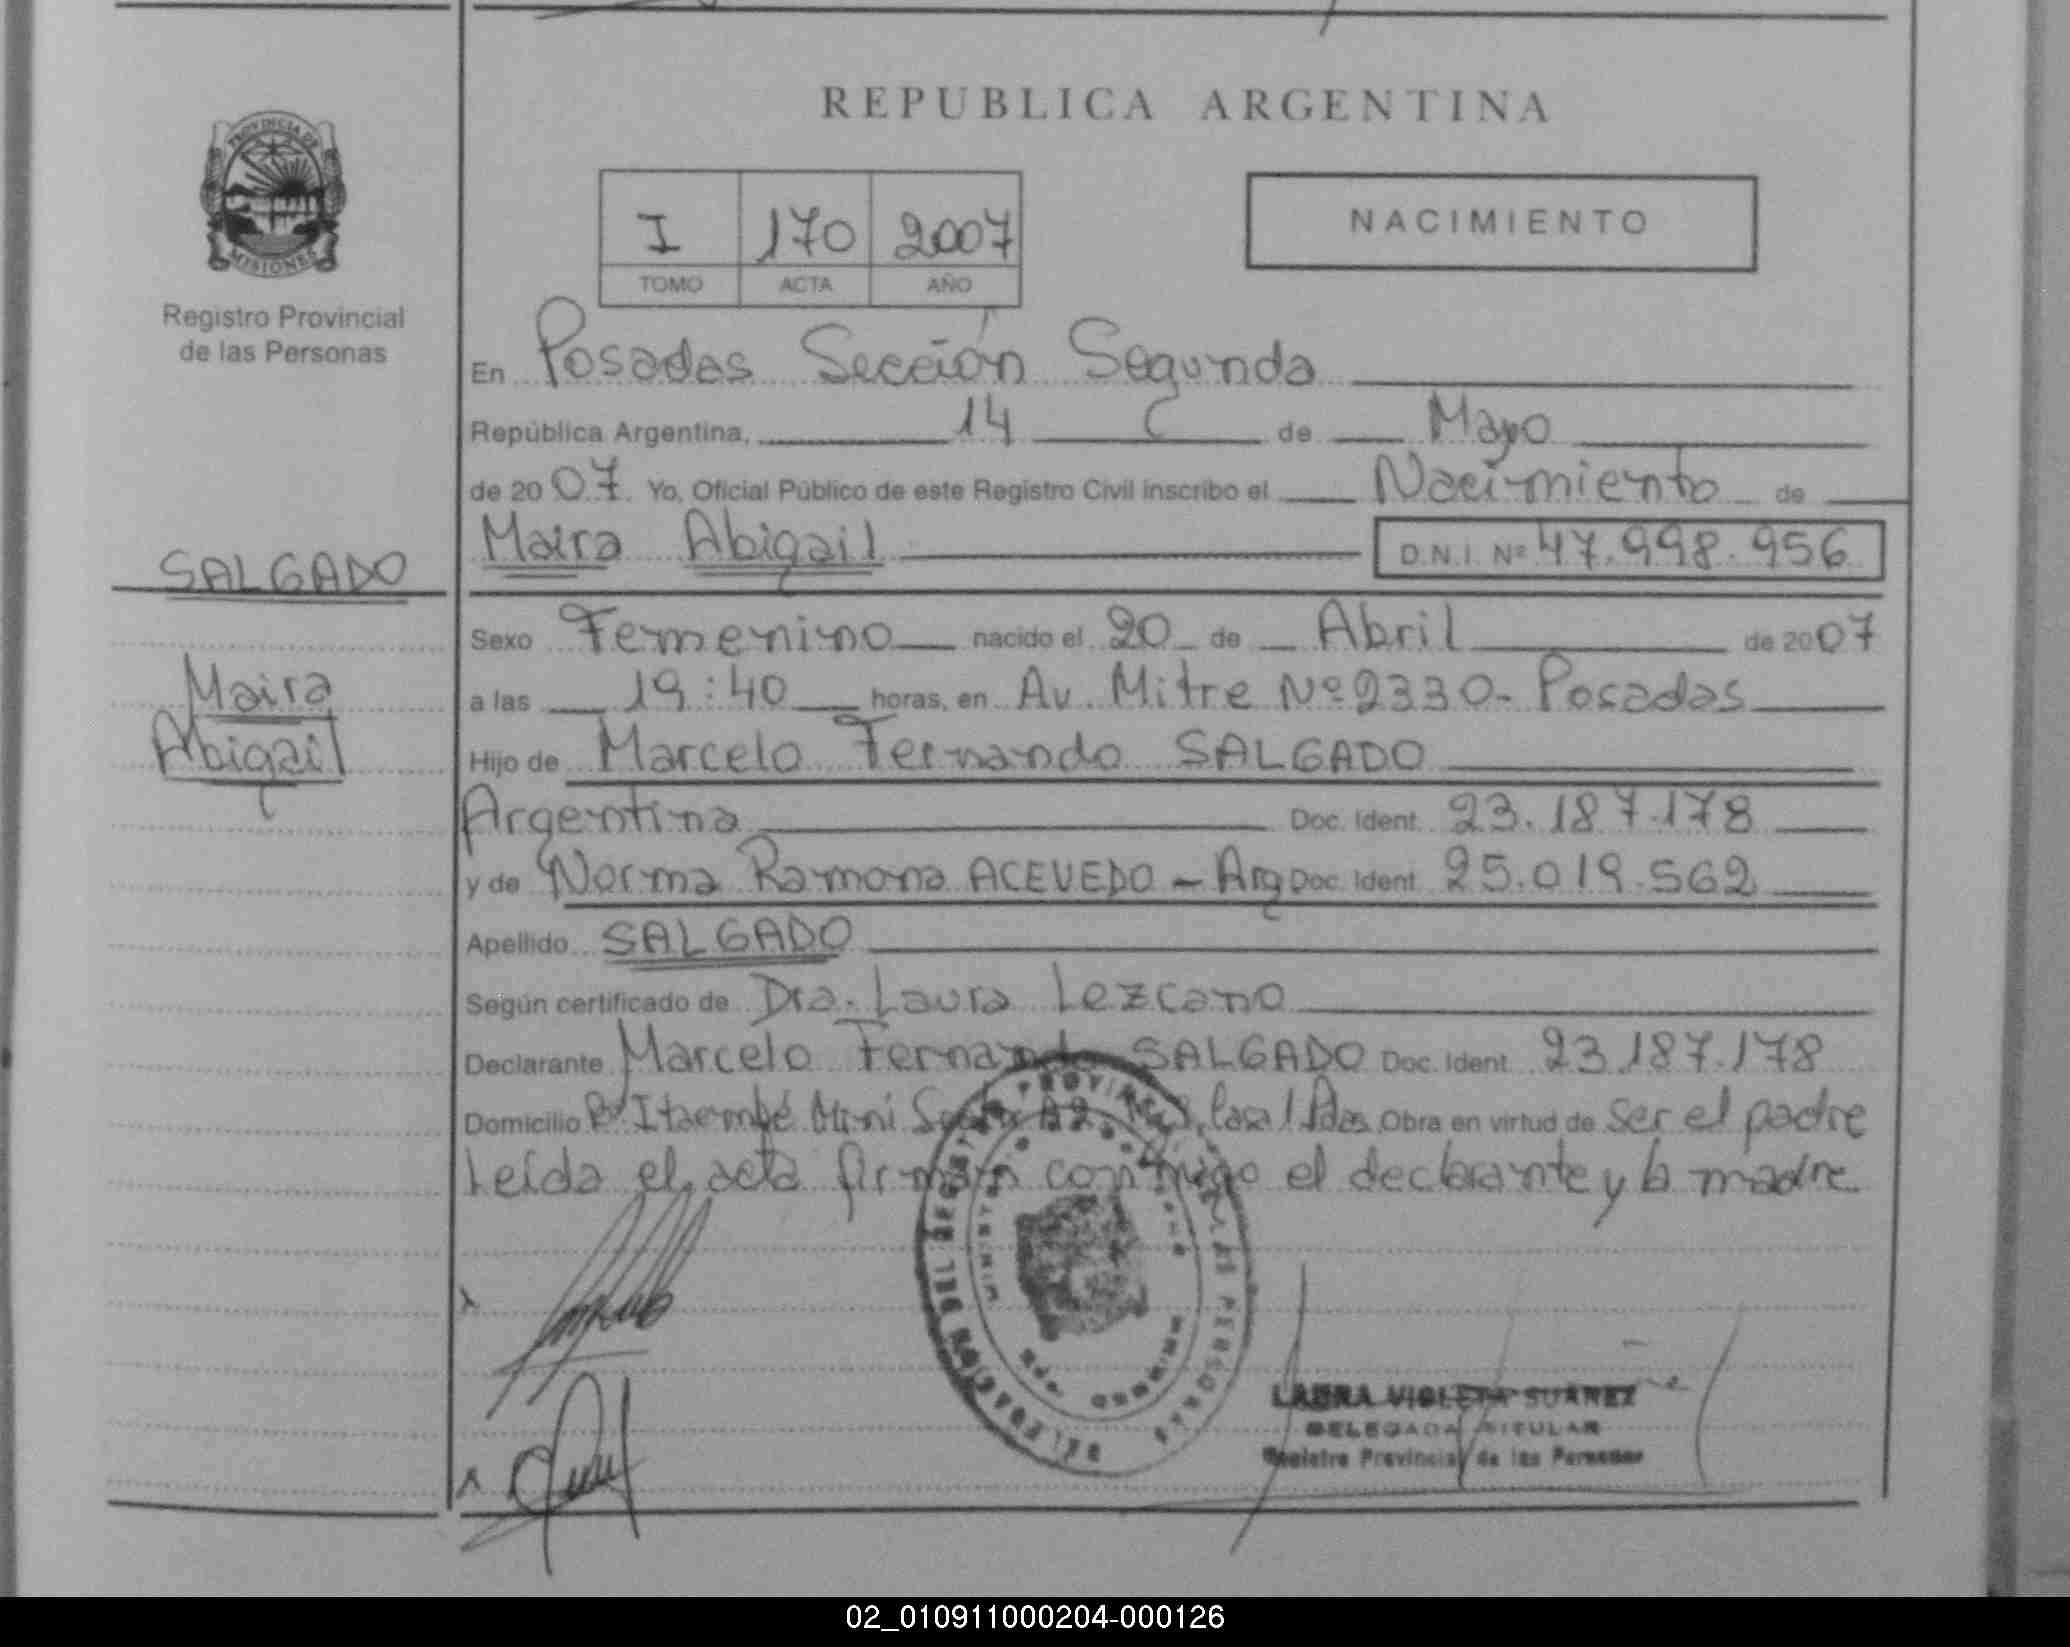 REPUBLICA ARGENTINA
PROVINCIA DE
MISIONES
Registro Provincial
de las Personas
I 170 2007
TOMO ACTA AÑO
NACIMIENTO
En Posadas Sección Segunda
República Argentina, 14 de Mayo
de 2007. Yo, Oficial Público de este Registro Civil inscribo el Nacimiento de
Maira Abigail D.N.I. Nº 47.998.956
SALGADO
Maira
Abigail
Sexo Femenino nacido el 20 de Abril de 2007
a las 19:40 horas, en Av. Mitre Nº 2330- Posadas
Hijo de Marcelo Fernando SALGADO
Argentina Doc. Ident. 23.187.178
y de Norma Ramona ACEVEDO - Arg Doc. Ident. 25.019.562
Apellido SALGADO
Según certificado de Dra. Laura Lezcano
Declarante Marcelo Fernando SALGADO Doc. Ident. 23.187.178
Domicilio Bº Itaembé Miní Obra en virtud de ser el padre
Leída el acta firman conmigo el declarante y la madre
DELEGACION DEL REGISTRO PROVINCIAL DE LAS PERSONAS
LAURA VIOLETA SUAREZ
DELEGADA TITULAR
Registro Provincial de las Personas
02_010911000204-000126